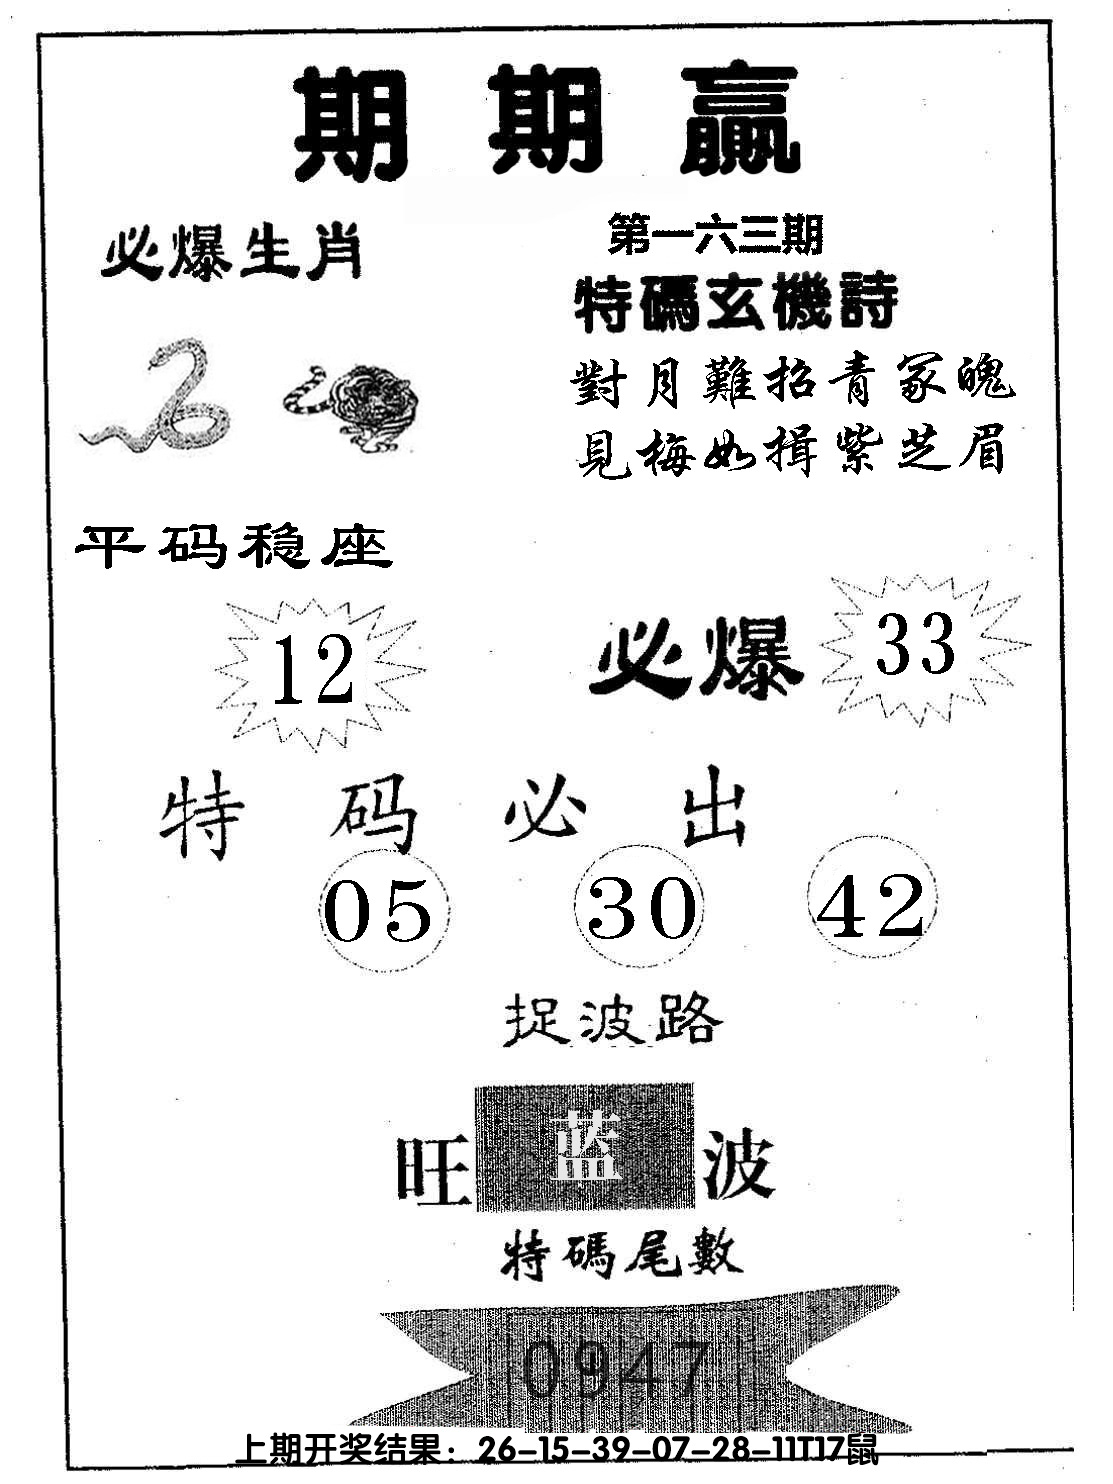 期期赢
必爆生肖
第一六三期
特碼玄機詩
對月難招青冢魄
見梅如揖紫芝眉
平码稳座
12
必爆 33
特码必出
05 30 42
捉波路
旺 蓝 波
特碼尾數
0947
上期开奖结果：26-15-39-07-28-11T17鼠